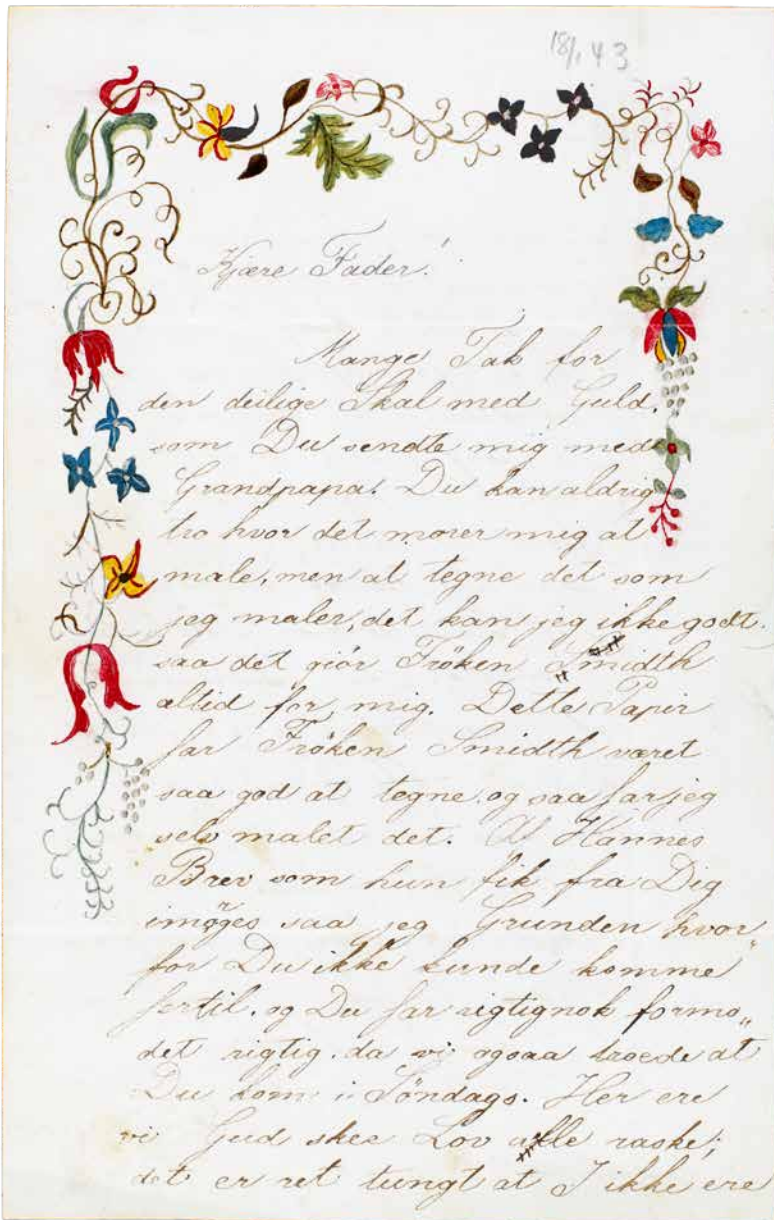 18/1 43
Kjære Fader!
Mange Tak for
den deilige Skal med Guld,
som Du sendte mig med
Grandpapa. Du kan aldrig
tro hvor det morer mig at
male, men at tegne det som
jeg maler, det kan jeg ikke godt.
saa det giör Fröken Smidth
altid for mig. Dette Papir
har Fröken Smidth været
saa god at tegne, og saa har jeg
selv malet det. Af Hannes
Brev som hun fik fra Dig
imorges saa jeg Grunden hvor„
for Du ikke kunde komme
hertil, og Du har rigtignok formo„
det rigtig, da vi ogsaa troede at
Du kom i Söndags. Her ere
vi Gud skee Lov alle raske;
det er ret tungt at I ikke ere